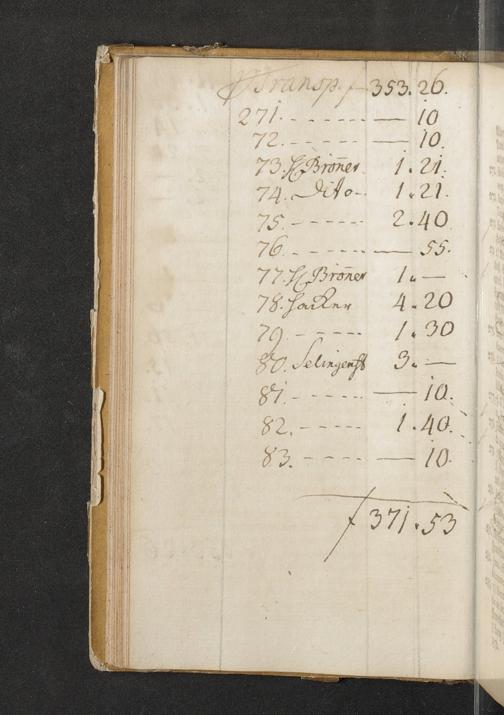 Transp. f 353. 26.
271. - - - - - — 10
72. - - - - - — 10.
73. H Broñer 1. 21.
74. Dito - 1. 21.
75. - - - - - 2. 40
76. - - - - - — 55.
77. H Broñer 1. —
78. Hacker 4. 20
79. - - - - - 1. 30
80. Selingenst 3. —
81. - - - - - — 10.
82. - - - - - 1. 40.
83. - - - - - — 10.
f 371. 53